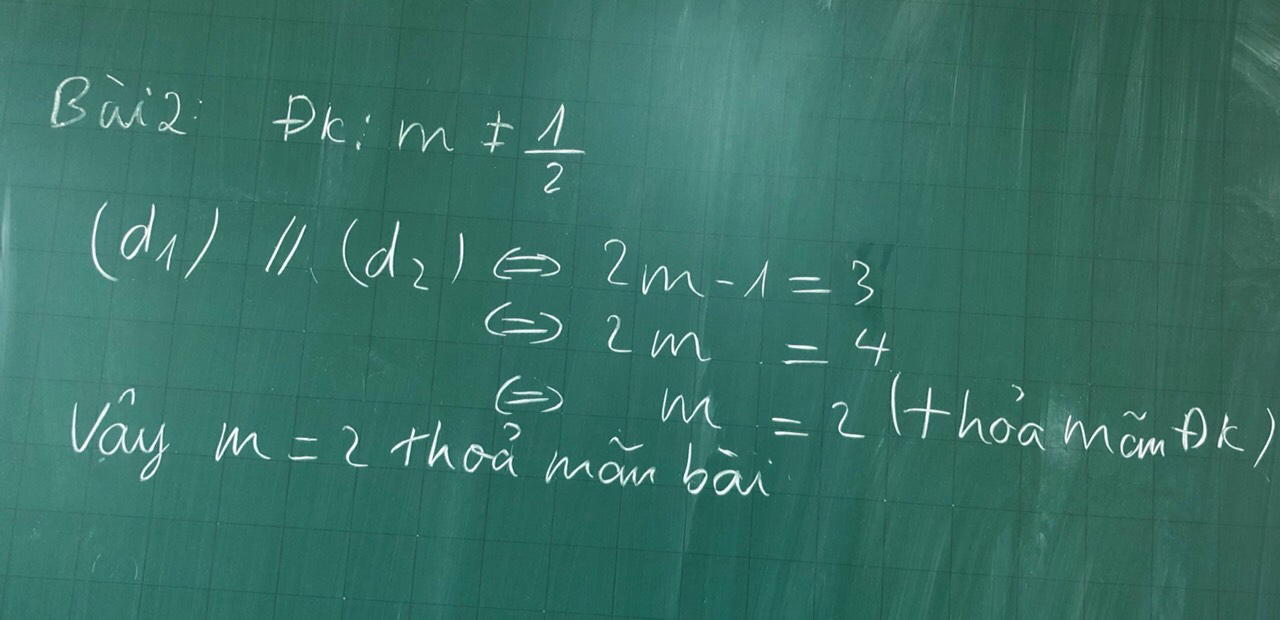 Bài 2: Đk: m ≠ 1/2
(d₁) // (d₂) ⇔ 2m - 1 = 3
⇔ 2m = 4
⇔ m = 2 (thỏa mãn Đk)
Vây m = 2 thoả mãn bài